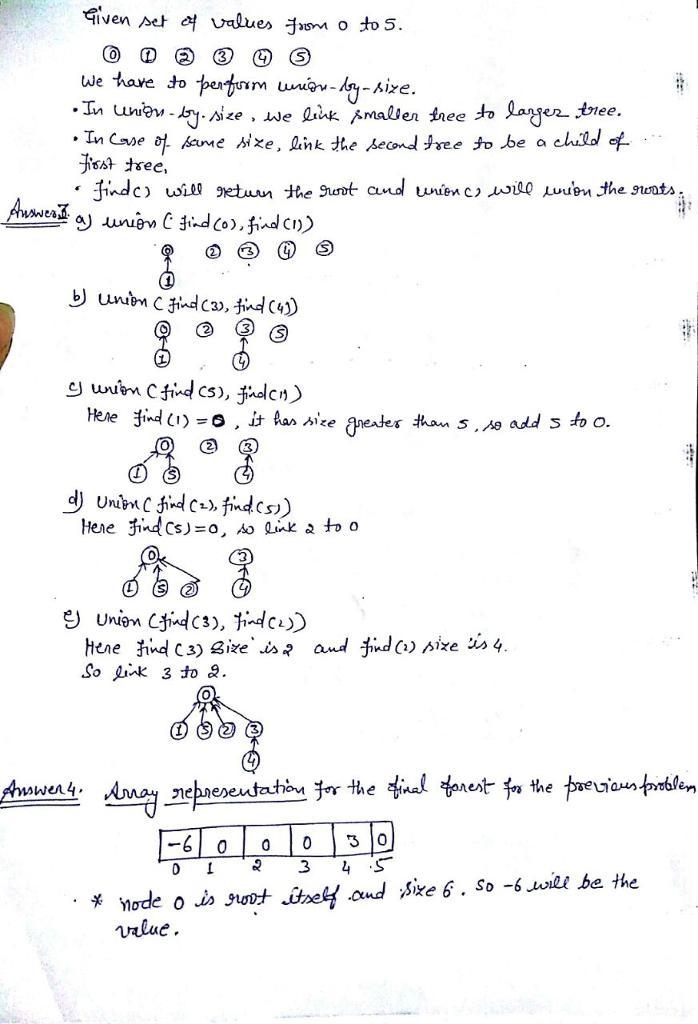 Given set of values from 0 to 5.
0 1 2 3 4 5
We have to perform union-by-size.
• In union-by-size, we link smaller tree to larger tree.
• In case of same size, link the second tree to be a child of
first tree,
• find() will return the root and union() will union the roots.
Answer 3. a) union ( find(0), find(1))
0 2 3 4 5
1
b) union ( find(3), find(4))
0 2 3 5
1 4
c) union ( find(5), find(1))
Here find(1) = 0, it has size greater than 5, so add 5 to 0.
0 2 3
1 5 4
d) Union( find(2), find(5))
Here find(5)=0, so link 2 to 0
0 3
1 5 2 4
e) Union (find(3), find(2))
Here find(3) size is 2 and find(2) size is 4.
So link 3 to 2.
0
1 5 2 3
4
Answer 4. Array representation for the final forest for the previous problem
-6 0 0 0 3 0
0 1 2 3 4 5
* node 0 is root itself and size 6. So -6 will be the
value.